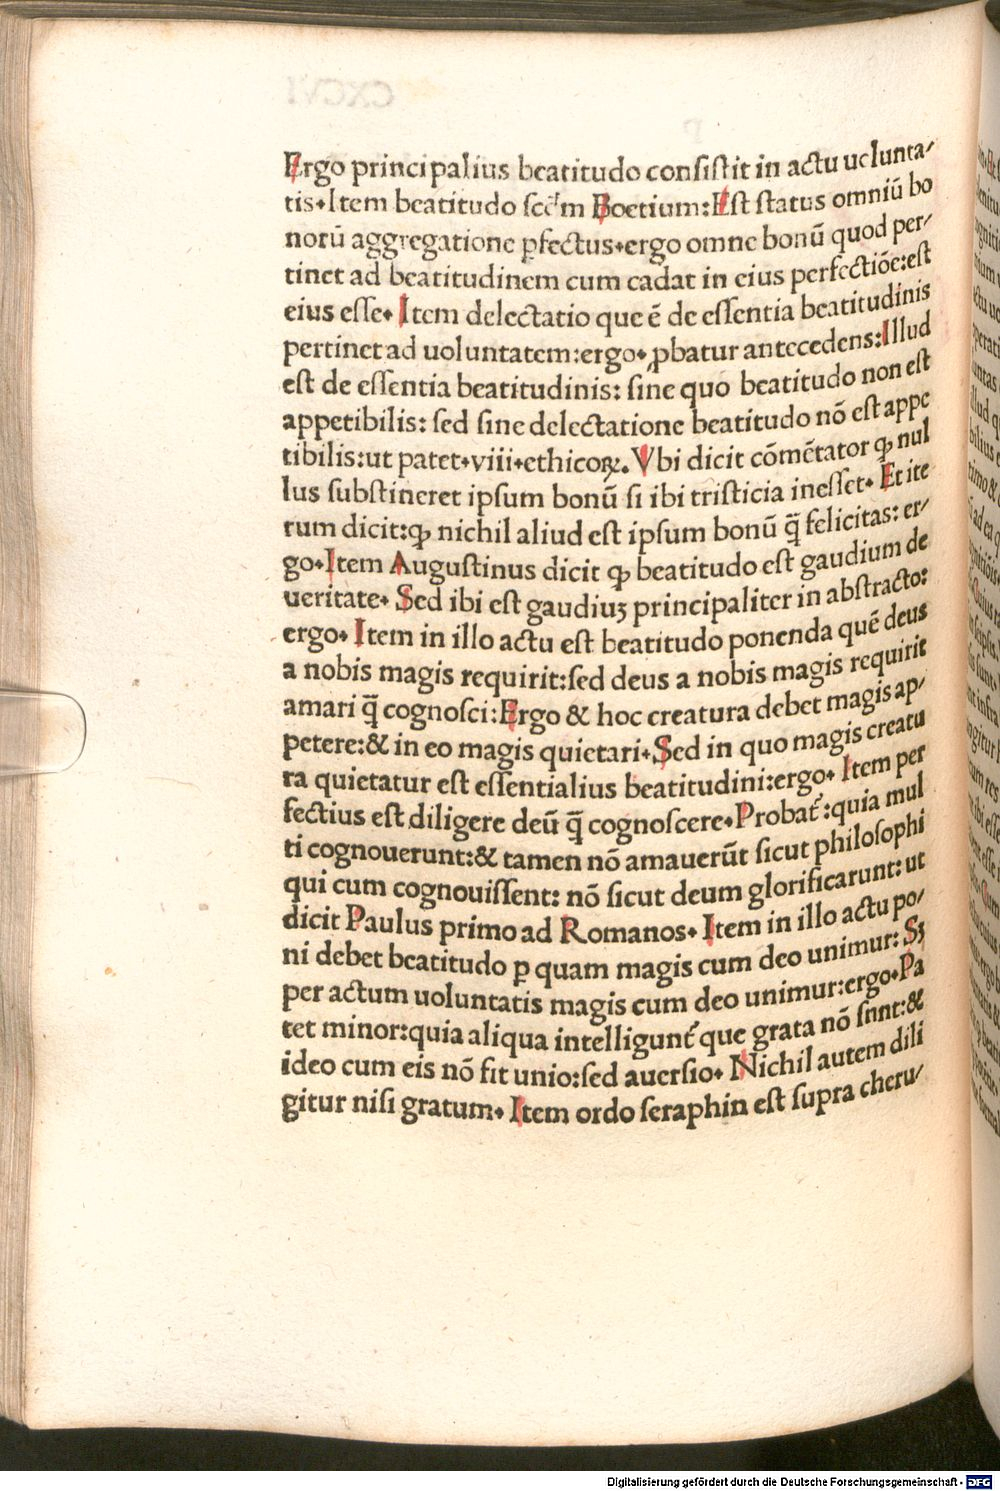 Ergo principalius beatitudo consistit in actu uolunta/
tis. Item beatitudo scďm Boetium: Est status omniū bo
norū aggregatione ꝑfectus. ergo omne bonū quod per/
tinet ad beatitudinem cum cadat in eius perfectiōe: est
eius esse. Item delectatio que ē de essentia beatitudinis
pertinet ad uoluntatem: ergo. ꝓbatur antecedens: Illud
est de essentia beatitudinis: sine quo beatitudo non est
appetibilis: sed sine delectatione beatitudo nō est appe
tibilis: ut patet. viii. ethicoꝝ. Vbi dicit cōmētator ꝙ nul
lus substineret ipsum bonū si ibi tristicia inesset. Et ite
rum dicit: ꝙ nichil aliud est ipsum bonū q̄ felicitas: er/
go. Item Augustinus dicit ꝙ beatitudo est gaudium de
ueritate. Sed ibi est gaudiuꝫ principaliter in abstracto:
ergo. Item in illo actu est beatitudo ponenda quē deus
a nobis magis requirit: sed deus a nobis magis requirit
amari q̄ cognosci: Ergo & hoc creatura debet magis ap/
petere: & in eo magis quietari. Sed in quo magis creatu
ra quietatur est essentialius beatitudini: ergo. Item per
fectius est diligere deū q̄ cognoscere. Probat᷑: quia mul
ti cognouerunt: & tamen nō amauerūt sicut philosophi
qui cum cognouissent: nō sicut deum glorificarunt: ut
dicit Paulus primo ad Romanos. Item in illo actu po/
ni debet beatitudo ꝑ quam magis cum deo unimur: Sꝫ
per actum uoluntatis magis cum deo unimur: ergo. Pa
tet minor: quia aliqua intelligunt᷑ que grata nō snnt: &
ideo cum eis nō fit unio: sed auersio. Nichil autem dili
gitur nisi gratum. Item ordo seraphin est supra cheru/
Digitalisierung gefördert durch die Deutsche Forschungsgemeinschaft - DFG